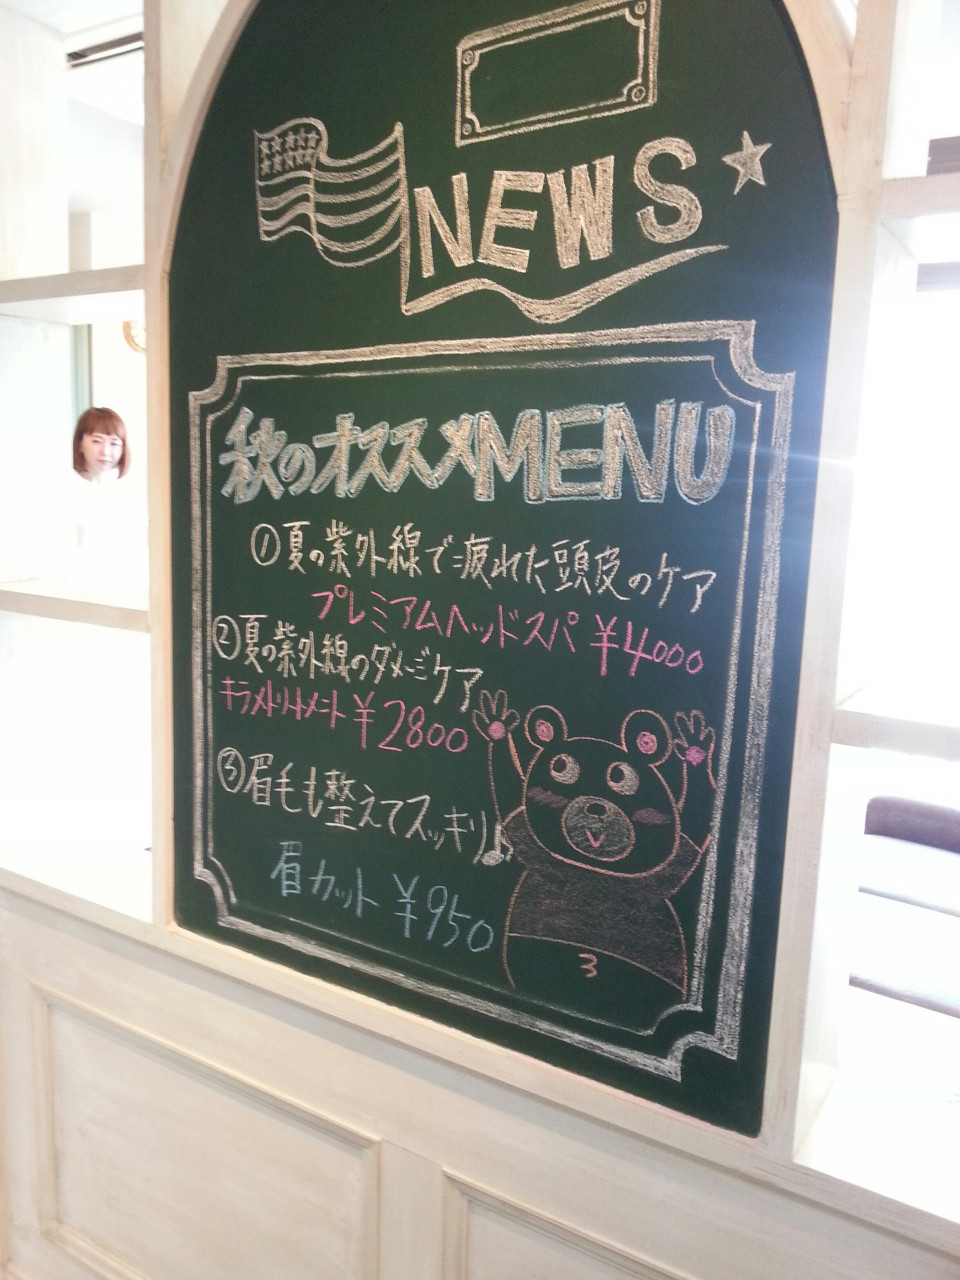 NEWS
秋のオススメMENU
①夏の紫外線で疲れた頭皮のケア
プレミアムヘッドスパ ¥4000
②夏の紫外線のダメージケア
キラメトリートメント ¥2800
③眉毛も整えてスッキリ♪
眉カット ¥950